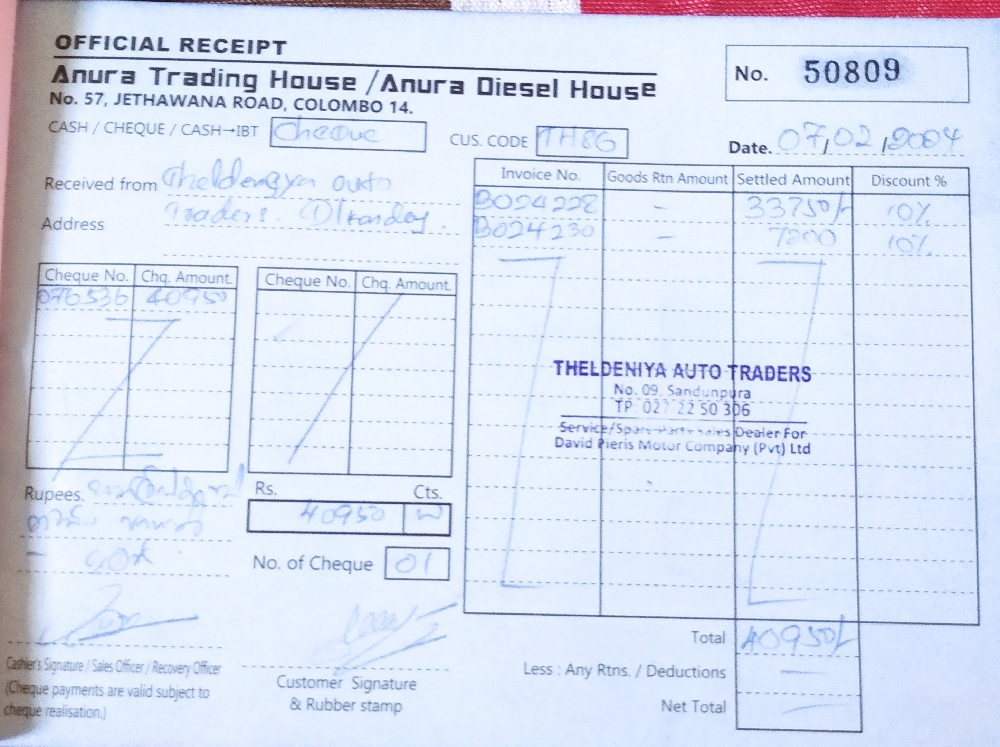 OFFICIAL RECEIPT
Anura Trading House /Anura Diesel House
No. 57, JETHAWANA ROAD, COLOMBO 14.
No. 50809
CASH / CHEQUE / CASH→IBT Cheque
CUS. CODE TH86
Date. 07/02/2004
Received from
Address Traders.
Invoice No. Goods Rtn Amount Settled Amount Discount %
B024228 - 33750/- 10%
B024230 - 7200 10%
Cheque No. Chq. Amount. Cheque No. Chq. Amount.
076536 40950
THELDENIYA AUTO TRADERS
No. 09, Sandunpura
TP: 027 22 50 306
Service/Spare Parts Sales Dealer For
David Pieris Motor Company (Pvt) Ltd
Rupees.
Rs. Cts.
40950
No. of Cheque 01
Total 40950/-
Less : Any Rtns. / Deductions -
Net Total -
Cashier's Signature / Sales Officer / Recovery Officer
(Cheque payments are valid subject to
cheque realisation.)
Customer Signature
& Rubber stamp